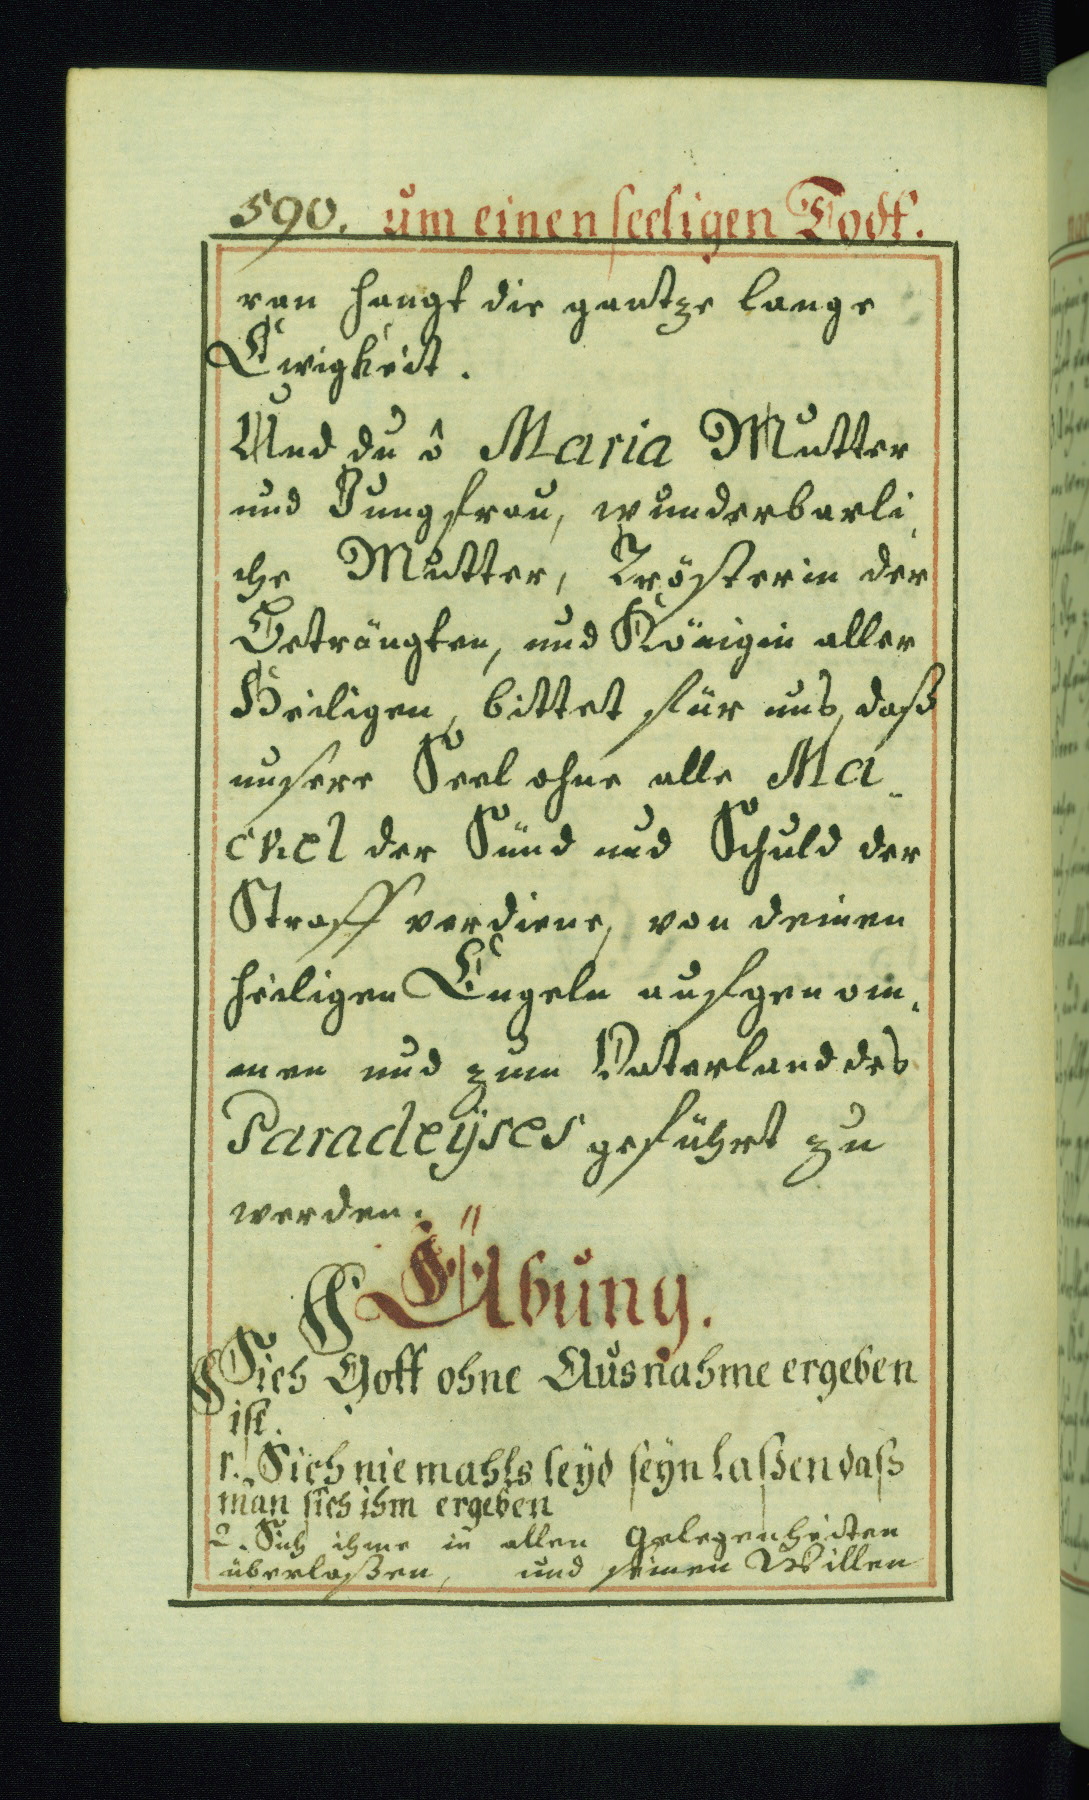 590. um einen seeligen Todt.
ran hangt die gantze lange
Ewigkeit.
Und du ô Maria Mutter
und Jungfrau, wunderbarli-
che Mutter, Trösterin der
Beträngten, und Königin aller
Heiligen, bittet für uns, daß
unsere Seel ohne alle Ma-
ckel der Sünd und Schuld der
Straff verdiene, von deinen
heiligen Engeln aufgenom-
men und zum Vaterland des
Paradeÿses geführt zu
werden.
Übung.
Sich Gott ohne Ausnahme ergeben
ist.
1. Sich niemahls leÿd seÿn laßen daß
man sich ihm ergeben
2. Sich ihme in allen Gelegenheiten
überlaßen, und seinen Willen